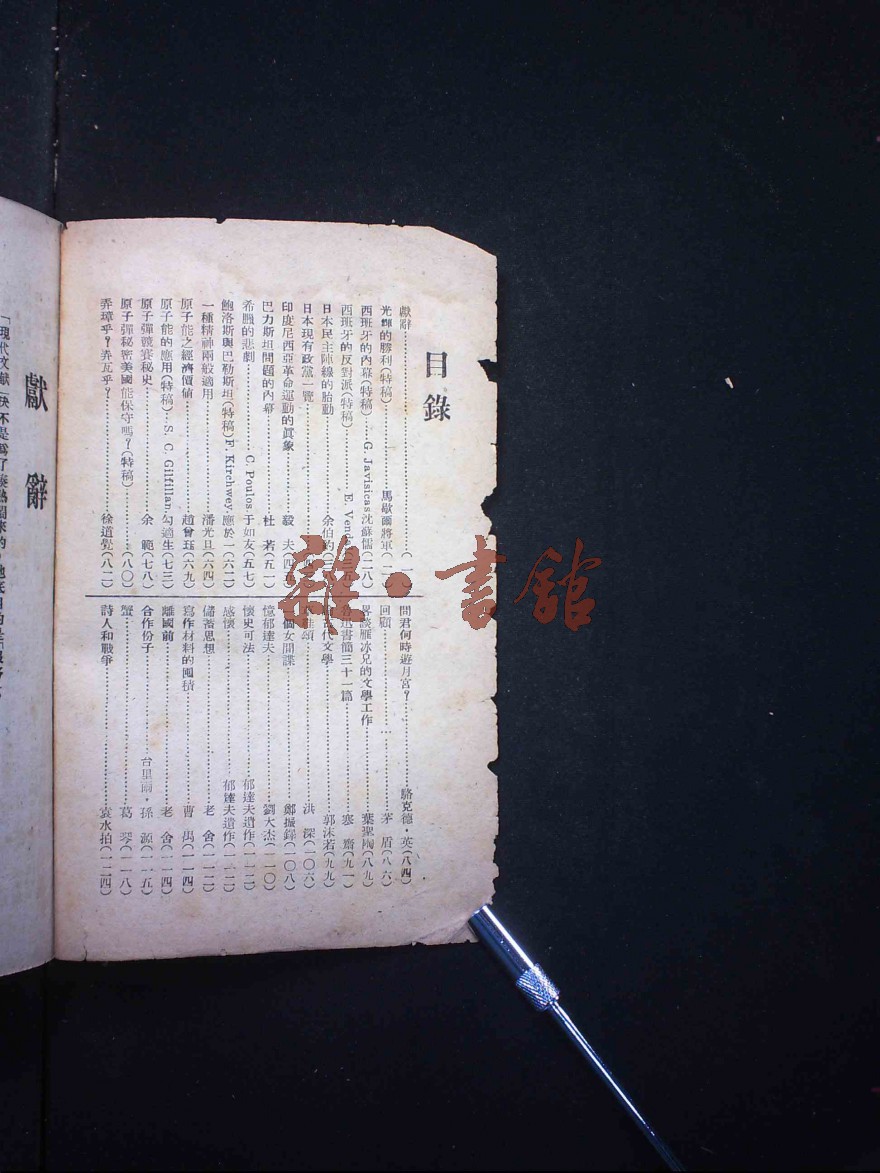 目錄
獻辭……………………(一)
光輝的勝利(特稿)………馬歇爾將軍(二)
西班牙的內幕(特稿)…G. Javisicas沈蘇儒(二八)
西班牙的反對派(特稿)………E. Vend
日本民主陣線的胎動………余伯約
日本現有政黨一覽
印度尼西亞革命運動的眞象………毅 夫(四
巴力斯坦問題的內幕………杜 若(五一)
希臘的悲劇………C. Poulos.于如友(五七)
鮑洛斯與巴勒斯坦(特稿)F. Kirchwey.應於一(六二)
一種精神兩般適用………潘光旦(六四)
原子能之經濟價値………趙曾珏(六九)
原子能的應用(特稿)…S. C. Gilfillan.勾適生(七三)
原子彈競賽秘史………余 範(七八)
原子彈秘密美國能保守嗎?(特稿)………(八〇)
弄璋乎?弄瓦乎?………徐道覺(八二)
問君何時遊月宮?………駱克德·英(八四)
回顧………茅 盾(八六)
畧談雁冰兄的文學工作………葉聖陶(八九)
魯迅書簡三十一篇………寒 齋(九一)
古代文學………郭沫若(九九)
頌………洪 深(一〇六)
一個女間諜………鄭振鐸(一〇八)
憶郁達夫………劉大杰(一一〇)
懷史可法………郁達夫遺作(一一二)
感懷………郁達夫遺作(一一二)
儲蓄思想………老 舍(一一二)
寫作材料的囤積………曹 禺(一一四)
離國前………老 舍(一一四)
合作份子………台里爾·孫 源(一一五)
蟹………葛 琴(一一八)
詩人和戰爭………袁水拍(一二四)
獻辭
「現代文獻」決不是爲了湊熱鬧來的
雜·書館